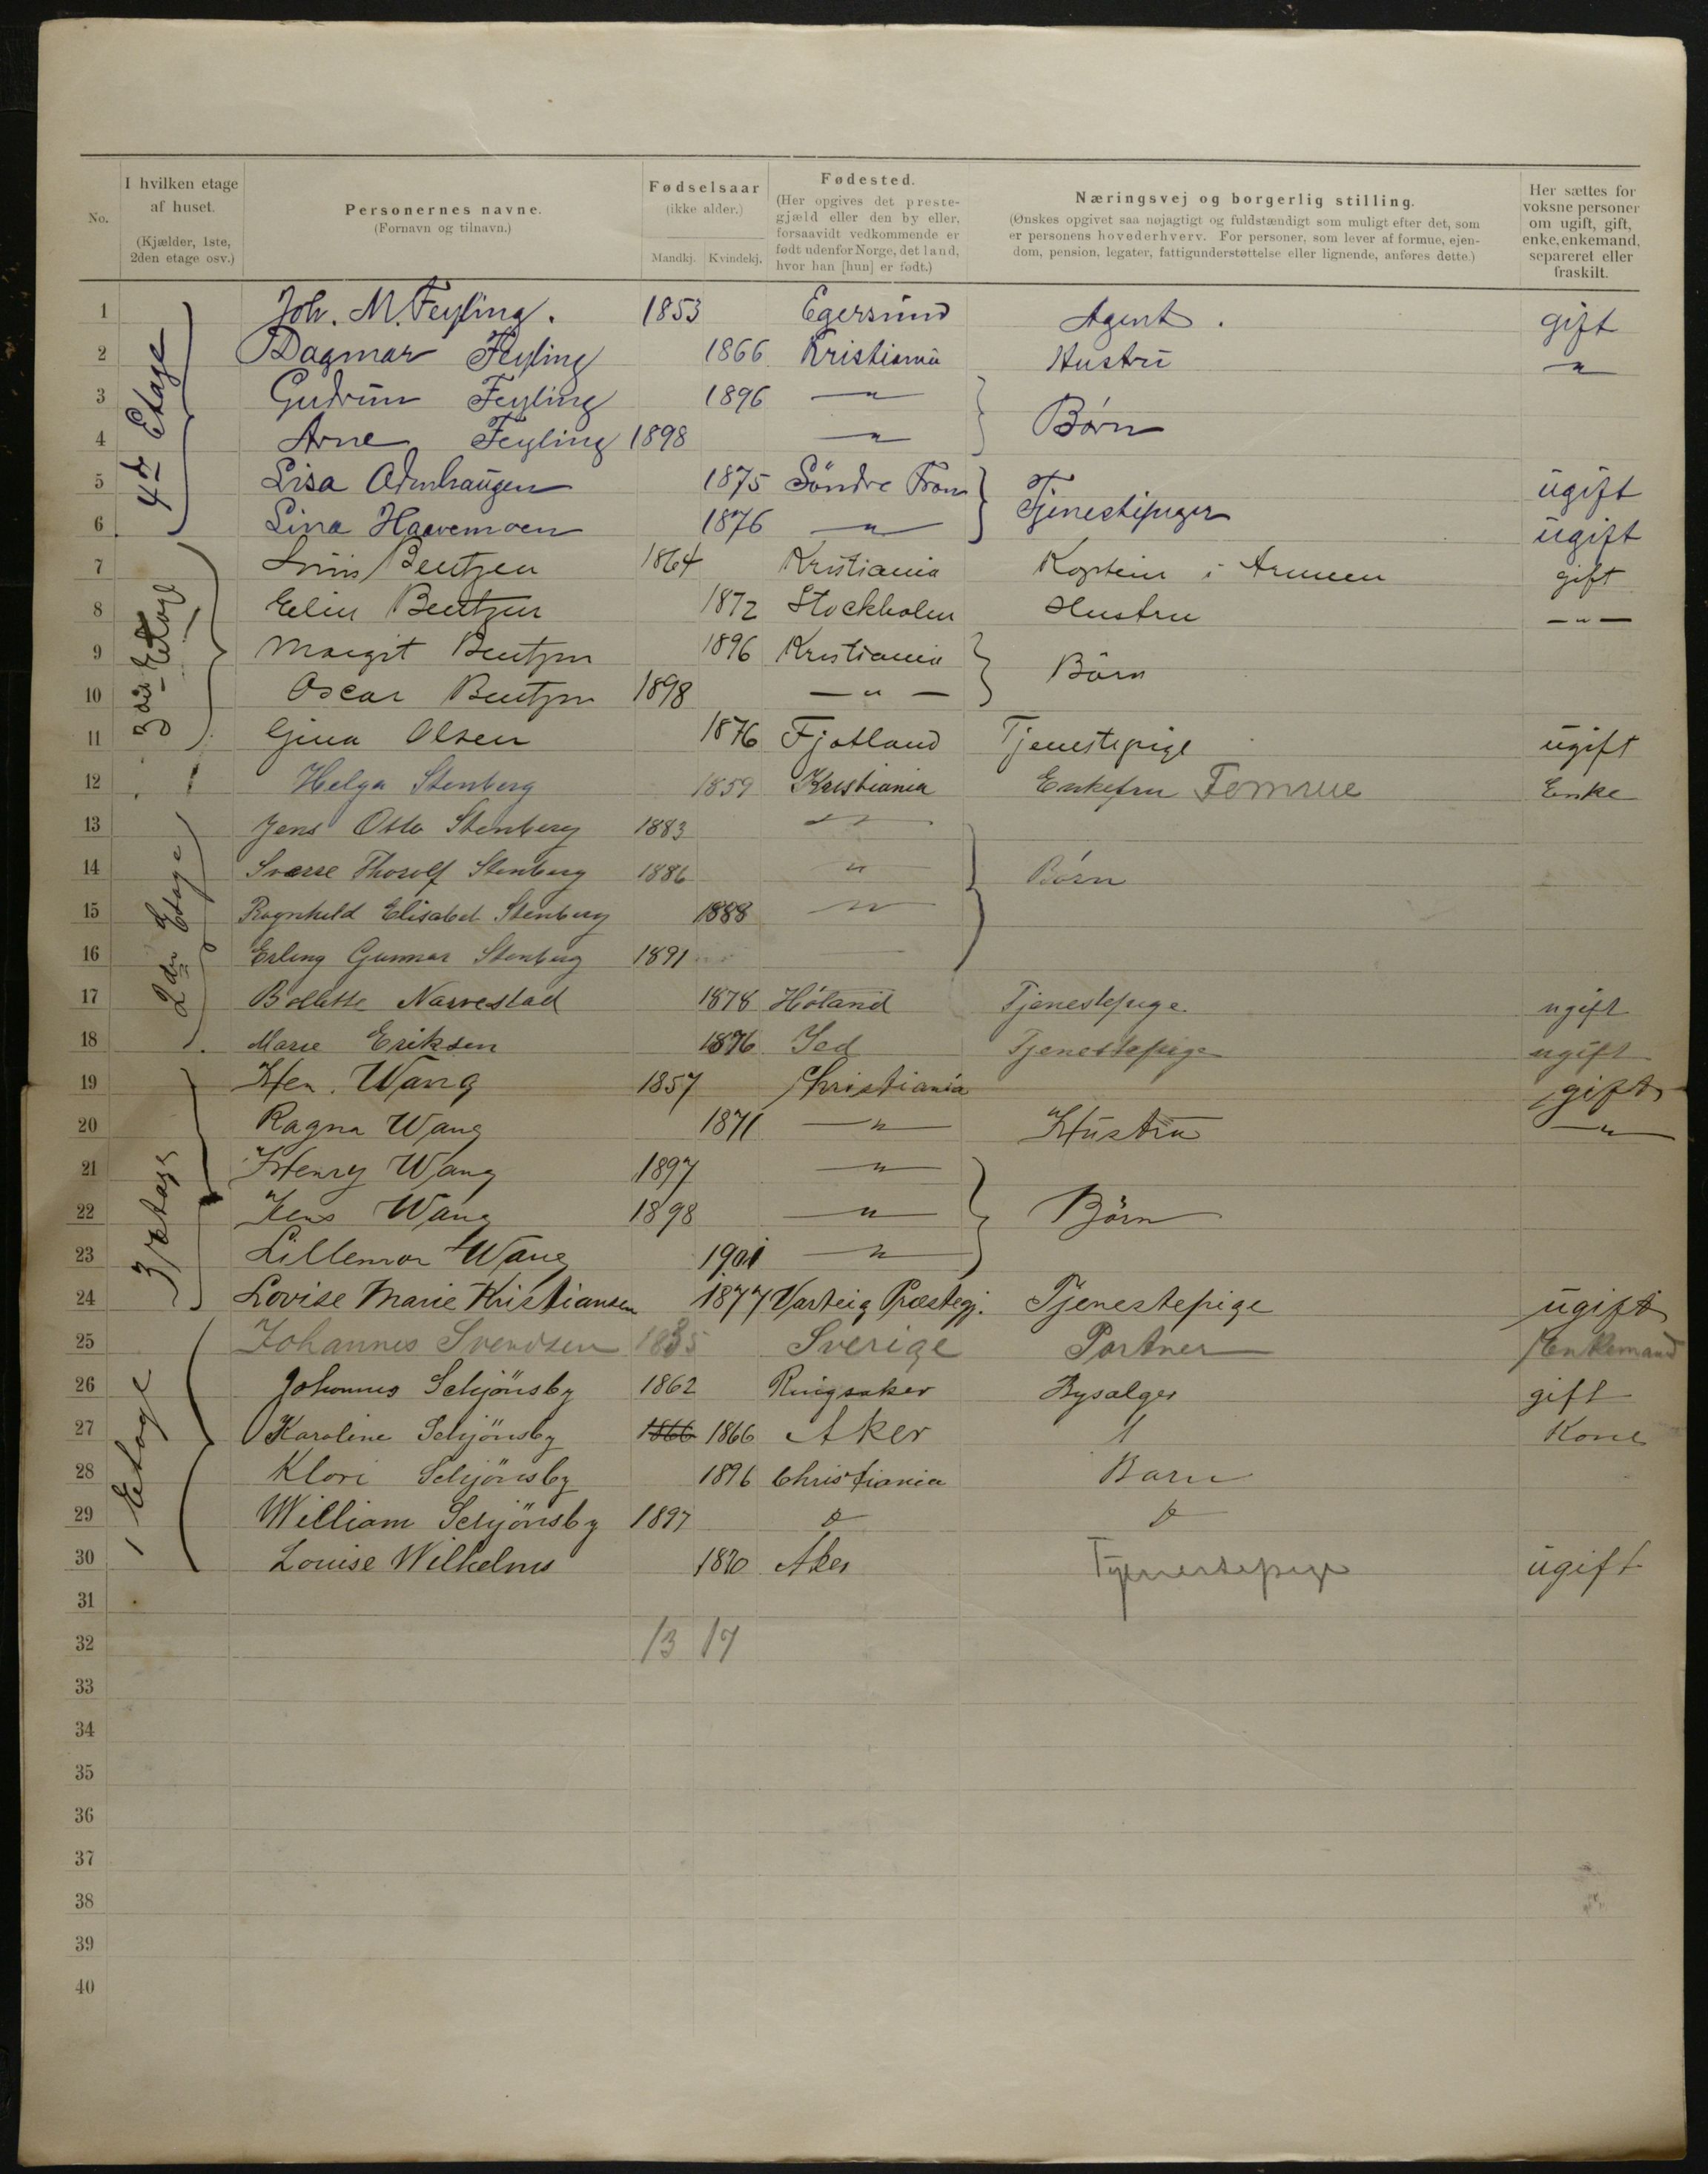 No.
I hvilken etage
af huset.
(Kjælder, 1ste,
2den etage osv.)
Personernes navne.
(Fornavn og tilnavn.)
Fødselsaar
(ikke alder.)
Mandkj. Kvindekj.
Fødested.
(Her opgives det preste-
gjæld eller den by eller,
forsaavidt vedkommende er
født udenfor Norge, det land,
hvor han [hun] er født.)
Næringsvej og borgerlig stilling.
(Ønskes opgivet saa nøjagtigt og fuldstændigt som muligt efter det, som
er personens hovederhverv. For personer, som lever af formue, ejen-
dom, pension, legater, fattigunderstøttelse eller lignende, anføres dette.)
Her sættes for
voksne personer
om ugift, gift,
enke, enkemand,
separeret eller
fraskilt.
4de Etage
1 Joh. M. Feyling. 1853 Egersund Agent. gift
2 Dagmar Feyling 1866 Kristiania Hustru "
3 Gudrun Feyling 1896 " Børn
4 Arne Feyling 1898 "
5 Lisa 1875 Söndre Fron Tjenestepiger ugift
6 Lina Haavemoen 1876 " ugift
3die Etage
7 Bentzen 1864 Kristiania Kaptein i Armeen gift
8 Elin Bentzen 1872 Stockholm Hustru — " —
9 Margit Bentzen 1896 Kristiania Börn
10 Oscar Bentzen 1898 — " —
11 Gina Olsen 1876 Fjotland Tjenestepige ugift
12 Helga Stenberg 1859 Kristiania Enkefru Formue Enke
2den Etage
13 Jens Otto Stenberg 1883 "
14 Sverre Thorolf Stenberg 1886 " Børn
15 Ragnhild Elisabet Stenberg 1888 "
16 Erling Gunnar Stenberg 1891 —
17 Bollette Narvestad 1878 Høland Tjenestepige ugift
18 Marie Eriksen 1876 Tjenestepige ugift
3 etage
19 Hen. Wang 1857 Christiania gift
20 Ragna Wang 1871 " Hustru "
21 Henry Wang 1897 "
22 Jens Wang 1898 " Börn
23 Lillemor Wang 1901 "
24 Lovise Marie Kristiansen 1877 Varteig Præstegj. Tjenestepige ugift
1 Etage
25 Johannes Svendsen 1835 Sverige Portner Enkemand
26 Johannes Schjönsby 1862 Ringsaker Bysælger gift
27 Karoline Schjönsby 1866 1866 Aker Kone
28 Klori Schjönsby 1896 Christiania Barn
29 William Schjönsby 1897
30 Louise Wilhelms 1870 Aker Tjenestepige ugift
31
32 13 17
33
34
35
36
37
38
39
40